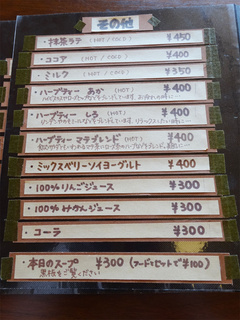 その他
・抹茶ラテ (HOT / COLD) ¥450
・ココア (HOT / COLD) ¥400
・ミルク (HOT / COLD) ¥350
・ハーブティー あか (HOT) ¥400
・ハーブティー しろ (HOT) ¥400
・ハーブティー マテブレンド (HOT) ¥400
・ミックスベリーソイヨーグルト ¥400
・100%りんごジュース ¥300
・100%みかんジュース ¥300
・コーラ ¥300
・本日のスープ ¥300 (フードとセットで¥100)
黒板をご覧ください